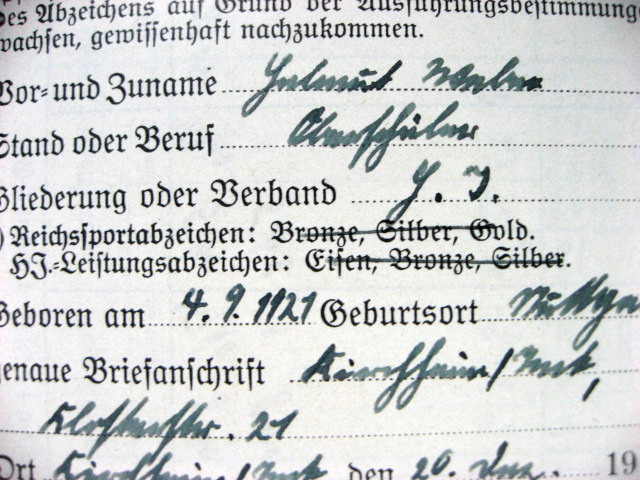 des Abzeichens auf Grund der Ausführungsbestimmunge
wachsen, gewissenhaft nachzukommen.
Vor- und Zuname Helmut
Stand oder Beruf Oberschüler
Gliederung oder Verband H. J.
) Reichssportabzeichen: Bronze, Silber, Gold.
HJ.-Leistungsabzeichen: Eisen, Bronze, Silber.
Geboren am 4. 9. 1921 Geburtsort Stuttga
genaue Briefanschrift Kirchheim/Teck,
21
Ort Kirchheim/Teck den 20. Dez. 19